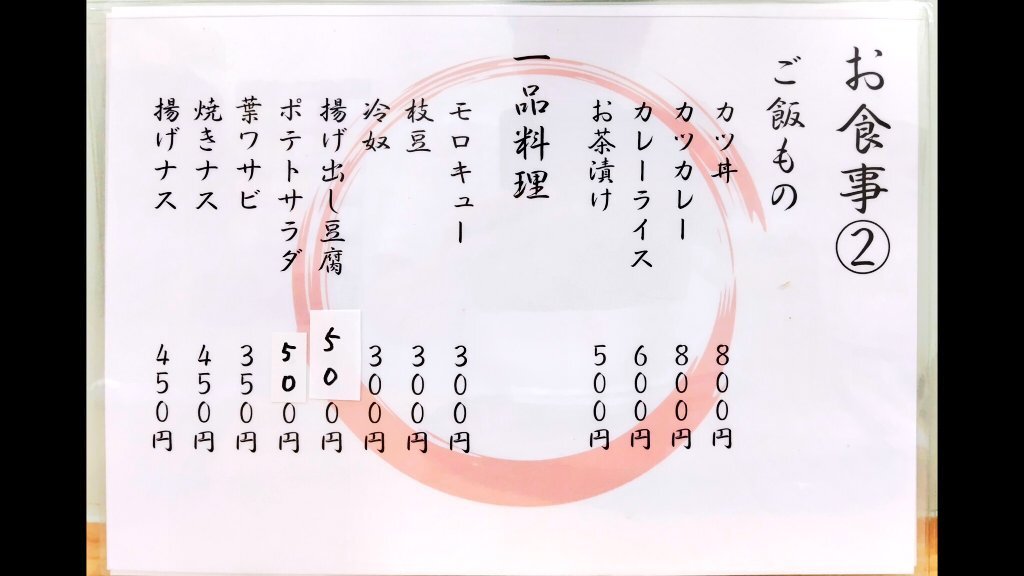 お食事②
ご飯もの
カツ丼 800円
カツカレー 800円
カレーライス 600円
お茶漬け 500円
一品料理
モロキュー 300円
枝豆 300円
冷奴 300円
揚げ出し豆腐 500円
ポテトサラダ 500円
葉ワサビ 350円
焼きナス 450円
揚げナス 450円